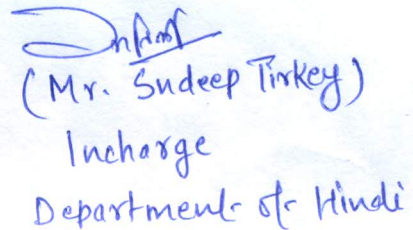 (Mr. Sudeep Tirkey)
Incharge
Department of Hindi